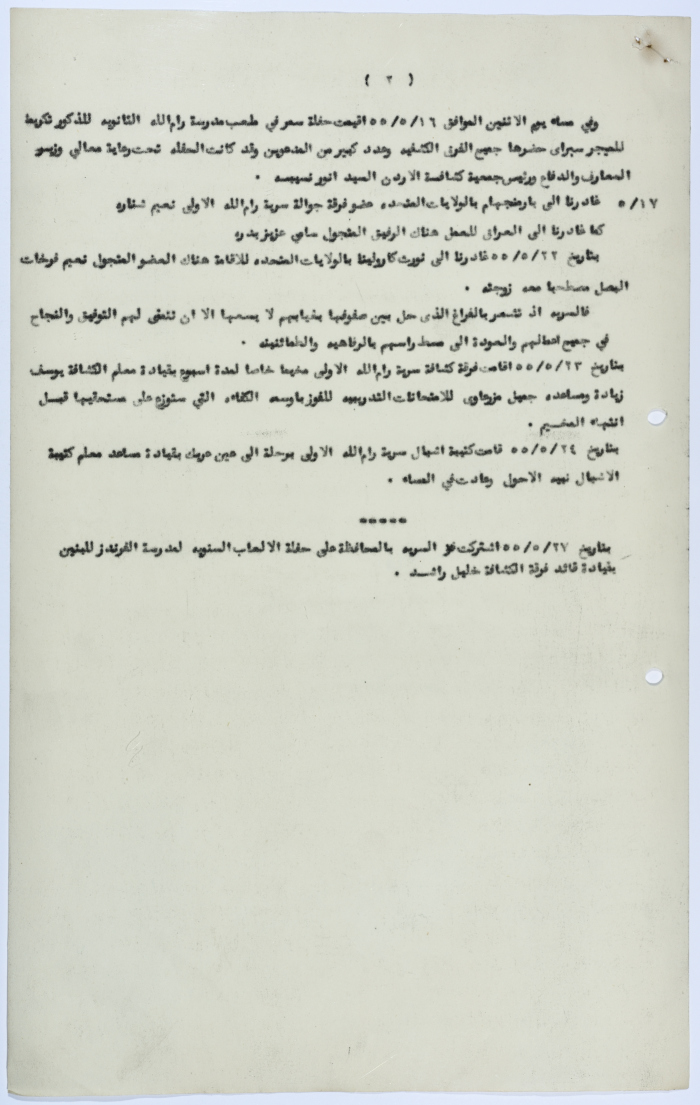 ( ٢ )
وفي مساء يوم الاثنين الموافق ٥٥/٥/١٦ اقيمت حفلة سمر في ملعب مدرسة رام الله الثانويه للمذكور تكريما
للميجر سيراى حضرها جميع الفرق الكشفيه وعدد كبير من المدعوين وقد كانت الحفله تحت رعاية معالي وزيسر
المعارف والدفاع ورئيس جمعية كشافسة الاردن السيد انور نسيبسه .
٥/١٧ غادرنا الى بارمنجهام بالولايات المتحده عضو فرقة جوالة سرية رام الله الاولى نعيم شناره
كما غادرنا الى العراق للعمل هناك الرفيق المتجول سامي عزيز بدره
بتاريخ ٥٥/٥/٢٢ غادرنا الى نورث كارولينا بالولايات المتحده للاقامة هناك العضو المتجول نعيم فرحات
البصل مصطحبا معه زوجته .
فالسريه اذ تشعر بالفراغ الذى حل بين صفوفها بغيابهم لا يسعها الا ان تتمنى لهم التوفيق والنجاح
في جميع اعمالهم والعودة الى مسقط راسهم بالرفاهيه والطمائنينه .
بتاريخ ٥٥/٥/٢٣ اقامت فرقة كشافة سرية رام الله الاولى مخيما خاصا لمدة اسبوع بقيادة معلم الكشافة يوسف
زيادة ومساعده جميل مزعاوى للامتحانات التدريبيه للفوز باوسمه الكفاءه التي ستوزع على مستحقيها قبسل
انتهاء المخيسم .
بتاريخ ٥٥/٥/٢٤ قامت كتيبة اشبال سرية رام الله الاولى برحلة الى عين عريك بقيادة مساعد معلم كتيبة
الاشبال نبيه الاحول وعادت في المساء .
*****
بتاريخ ٥٥/٥/٢٧ اشتركت السريه بالمحافظة على حفلة الالعاب السنويه لمدرسة الفرندز للبنين
بقيادة قائد فرقة الكشافة خليل راشسد .